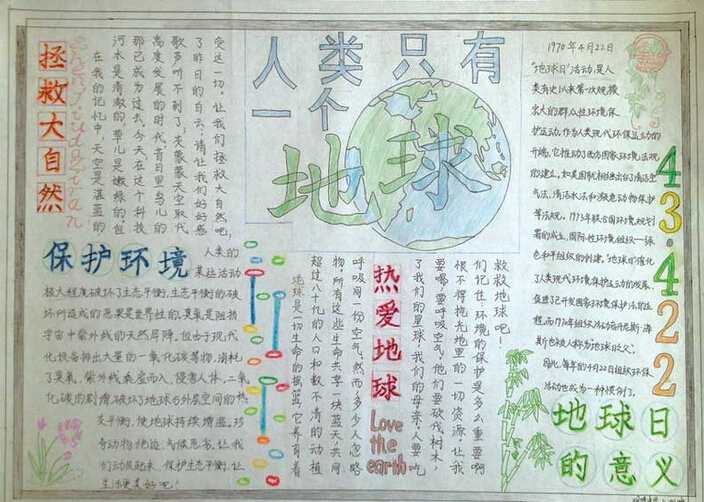 人类只有
一个
地球
拯救大自然
在我的记忆中，天空是湛蓝的
河水是清澈的，草儿是嫩绿的，但
那已成为过去，今天，在这个科技
高度发展的时代，昔日里鸟儿的
歌声听不到了，灰蒙蒙天空取代
了昨日的白云；请让我们好好感
受这一切，让我们拯救大自然吧，
保护环境
人类的
某些活动
极大程度破坏了生态平衡，生态平衡的破
坏所造成的恶果是世界性的，臭氧是阻挡
宇宙中紫外线的天然屏障，但由于现代
化设备排出大量的二氧化碳等物，消耗
了臭氧，紫外线乘虚而入，侵害人体，二氧
化碳的剧增破坏了地球与外层空间的热
支平衡，使地球持续增温，珍
奇动物绝迹，气候恶劣，让我
们动员起来，保护生态平衡，让
生活更美好吧！
地球是一切生命的摇篮，它养育着
超过八十亿的人口和数不清的动植
物，所有这些生命共享一块蓝天，共同
呼吸同一份空气，然而多少人忽略
了我们的星球，我们的母亲，人要吃
要喝，要呼吸空气，他们要砍伐树木，
恨不得抢光地里的一切资源，让我
们记住，环境的保护是多么重要啊
救救地球吧！
热爱地球
Love
the
earth
1970年4月22日
"地球日"活动，是人
类有史以来第一次规模
宏大的群众性环境保
护运动，作为人类现代环保运动的
开端，它推动了西方国家环境法规
的建立，如美国就相继出台了清洁空
气法、清洁水法和濒危动物保护
等法规。1973年联合国环境规划
署的成立，国际性环境组织—绿
色和平组织的创建，"地球日"催化
了人类现代环境保护运动的发展，
促进了已开发国家环境保护法的进
程，而1970年组织活动的丹尼斯·海
斯也被人称为地球日之父。
因此，每年的4月22日组织环保
活动也成为一种惯例了。
43.422
地球日
的意义